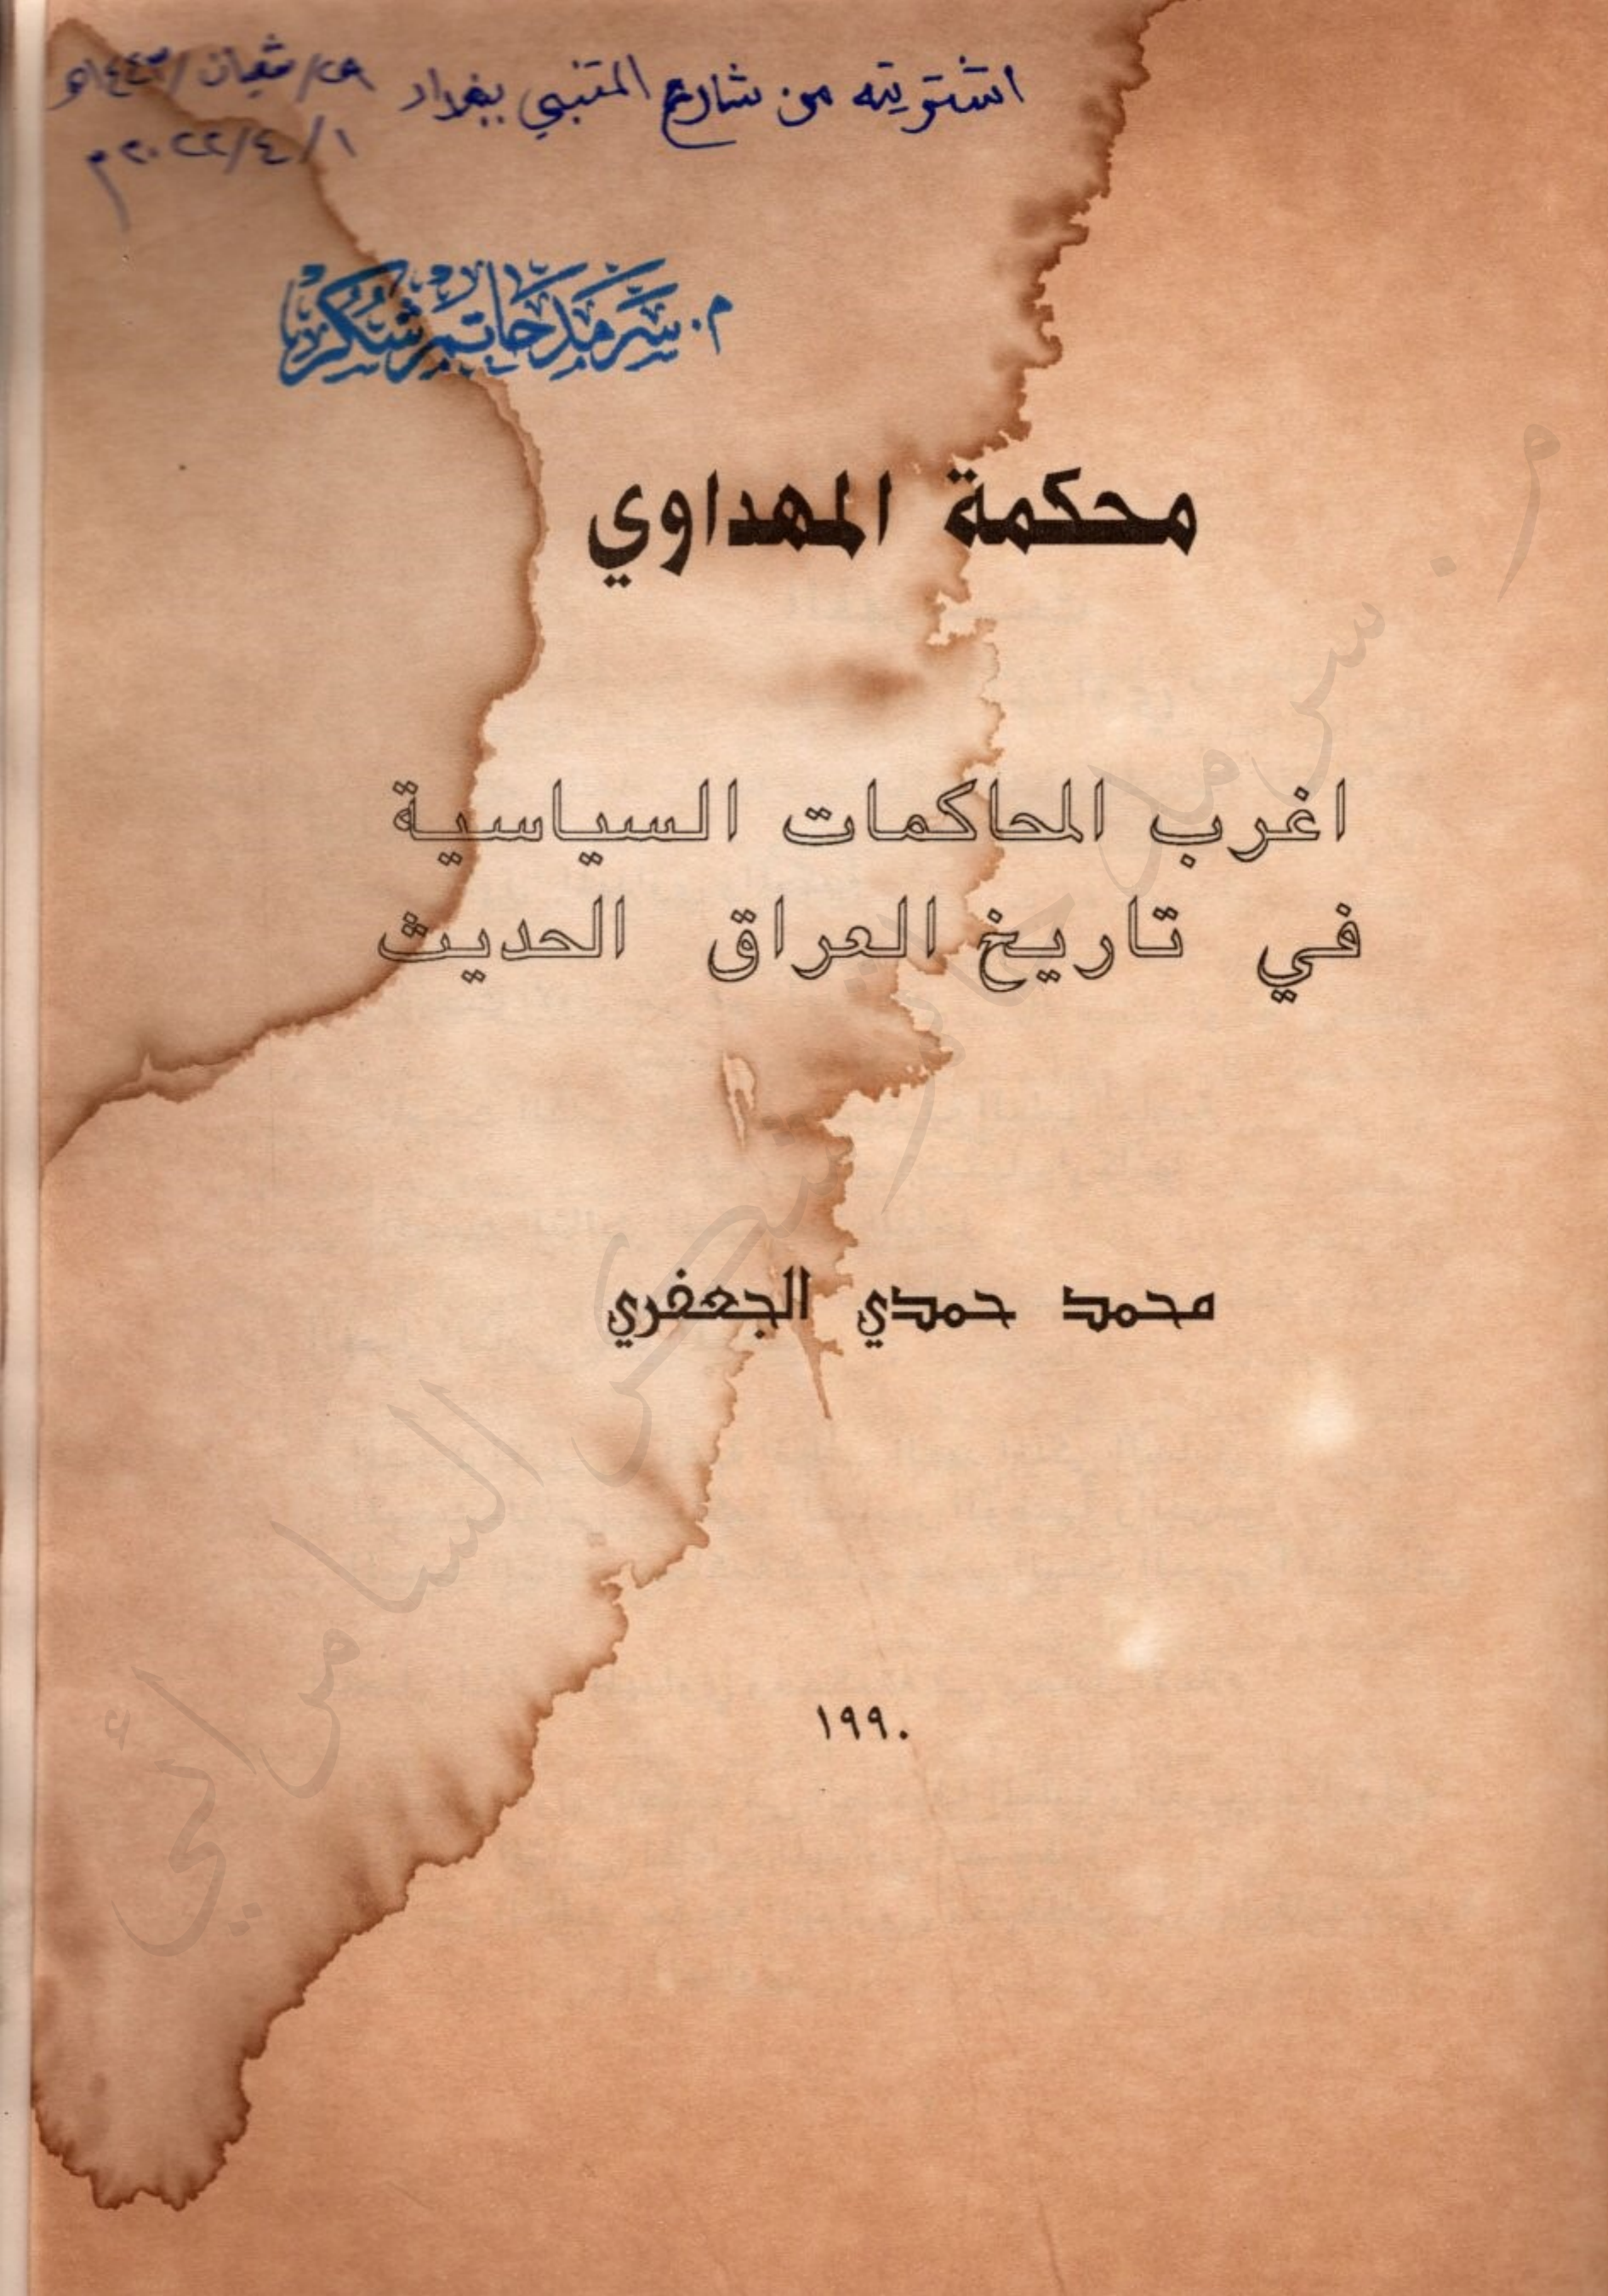 اشتريته من شارع المتنبي ببغداد ٢٨/شعبان/١٤٤٣هـ
١/٤/٢٠٢٢م
م. سرمد حاتم شكر
محكمة المهداوي
اغرب المحاكمات السياسية
في تاريخ العراق الحديث
محمد حمدي الجعفري
١٩٩٠
م. سرمد حاتم شكر السامرائي